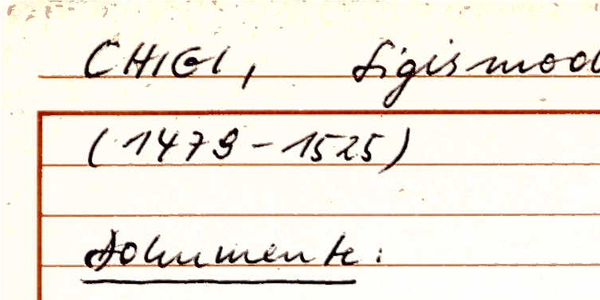 CHIGI, Sigismod
(1479-1525)
Dokumente: